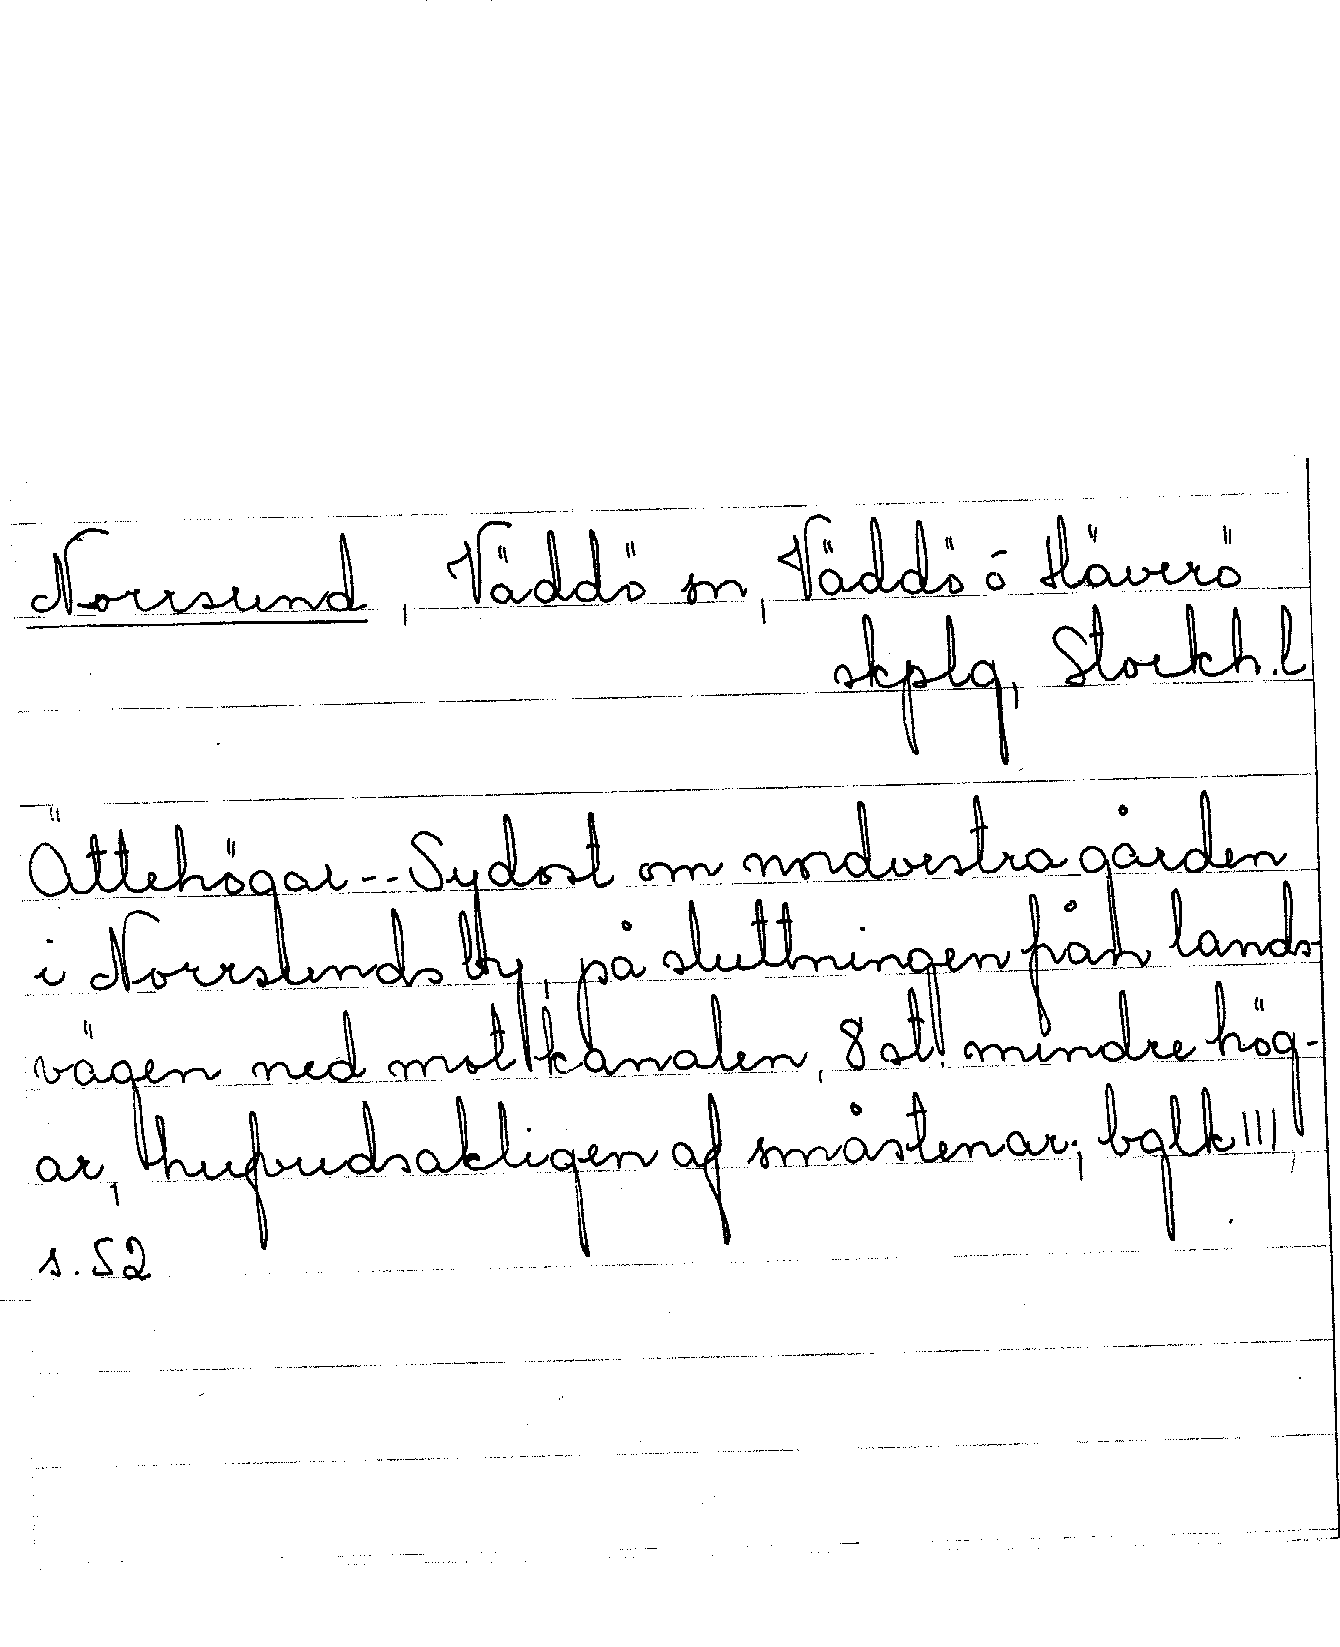 Norrsund, Väddö sn, Väddö o Häverö
skplg, Stockh. l
Ättehögar -- Sydost om nordvestra gården
i Norrsunds by, på sluttningen från lands-
vägen ned mot kanalen, 8 st. mindre hög-
ar, hufvudsakligen af småstenar; bglk III,
s. 52